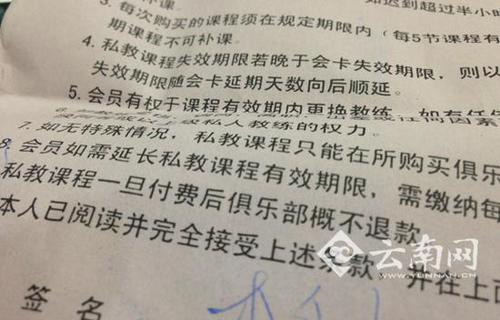 补课。
如迟到超过半小时
3. 每次购买的课程须在规定期限内（每5节课程有
期课程不可补课。
4. 私教课程失效期限若晚于会卡失效期限，则以
失效期限随会卡延期天数向后顺延。
5. 会员有权于课程有效期内更换教练，如有任何
级私人教练的权力。
7. 如无特殊情况，私教课程只能在所购买俱乐
8. 会员如需延长私教课程有效期限，需缴纳每
私教课程一旦付费后俱乐部概不退款。
本人已阅读并完全接受上述条款，并在上面
签名
云南网
WWW.YUNNAN.CN